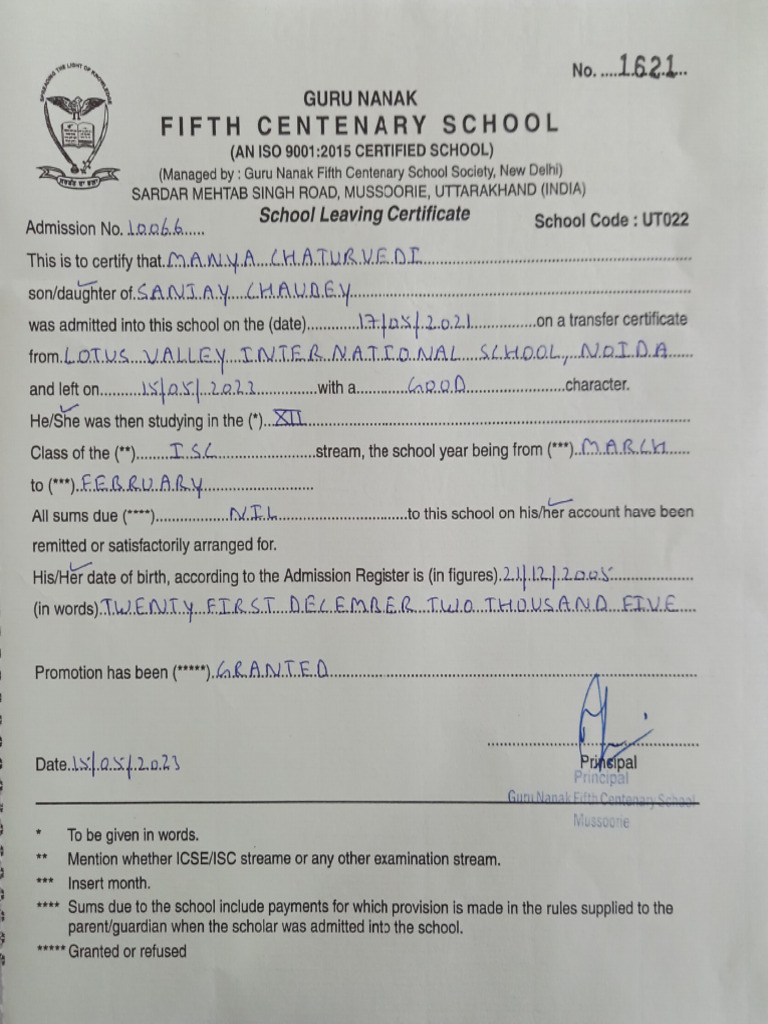 SPREADING THE LIGHT OF KNOWLEDGE
No. ....1621...
GURU NANAK
FIFTH CENTENARY SCHOOL
(AN ISO 9001:2015 CERTIFIED SCHOOL)
(Managed by : Guru Nanak Fifth Centenary School Society, New Delhi)
SARDAR MEHTAB SINGH ROAD, MUSSOORIE, UTTARAKHAND (INDIA)
School Leaving Certificate
School Code : UT022
Admission No. 10066.....
This is to certify that MANYA CHATURVEDI
son/daughter of SANJAY CHAUBEY
was admitted into this school on the (date) 17/05/2021 on a transfer certificate
from LOTUS VALLEY INTERNATIONAL SCHOOL, NOIDA
and left on 15/05/2023 with a GOOD character.
He/She was then studying in the (*) XII
Class of the (**) ISC stream, the school year being from (***) MARCH
to (***) FEBRUARY
All sums due (****) NIL to this school on his/her account have been
remitted or satisfactorily arranged for.
His/Her date of birth, according to the Admission Register is (in figures) 21/12/2005
(in words) TWENTY FIRST DECEMBER TWO THOUSAND FIVE
Promotion has been (*****) GRANTED
Date 15/05/2023
Principal
Principal
Guru Nanak Fifth Centenary School
Mussoorie
* To be given in words.
** Mention whether ICSE/ISC streame or any other examination stream.
*** Insert month.
**** Sums due to the school include payments for which provision is made in the rules supplied to the
parent/guardian when the scholar was admitted into the school.
***** Granted or refused